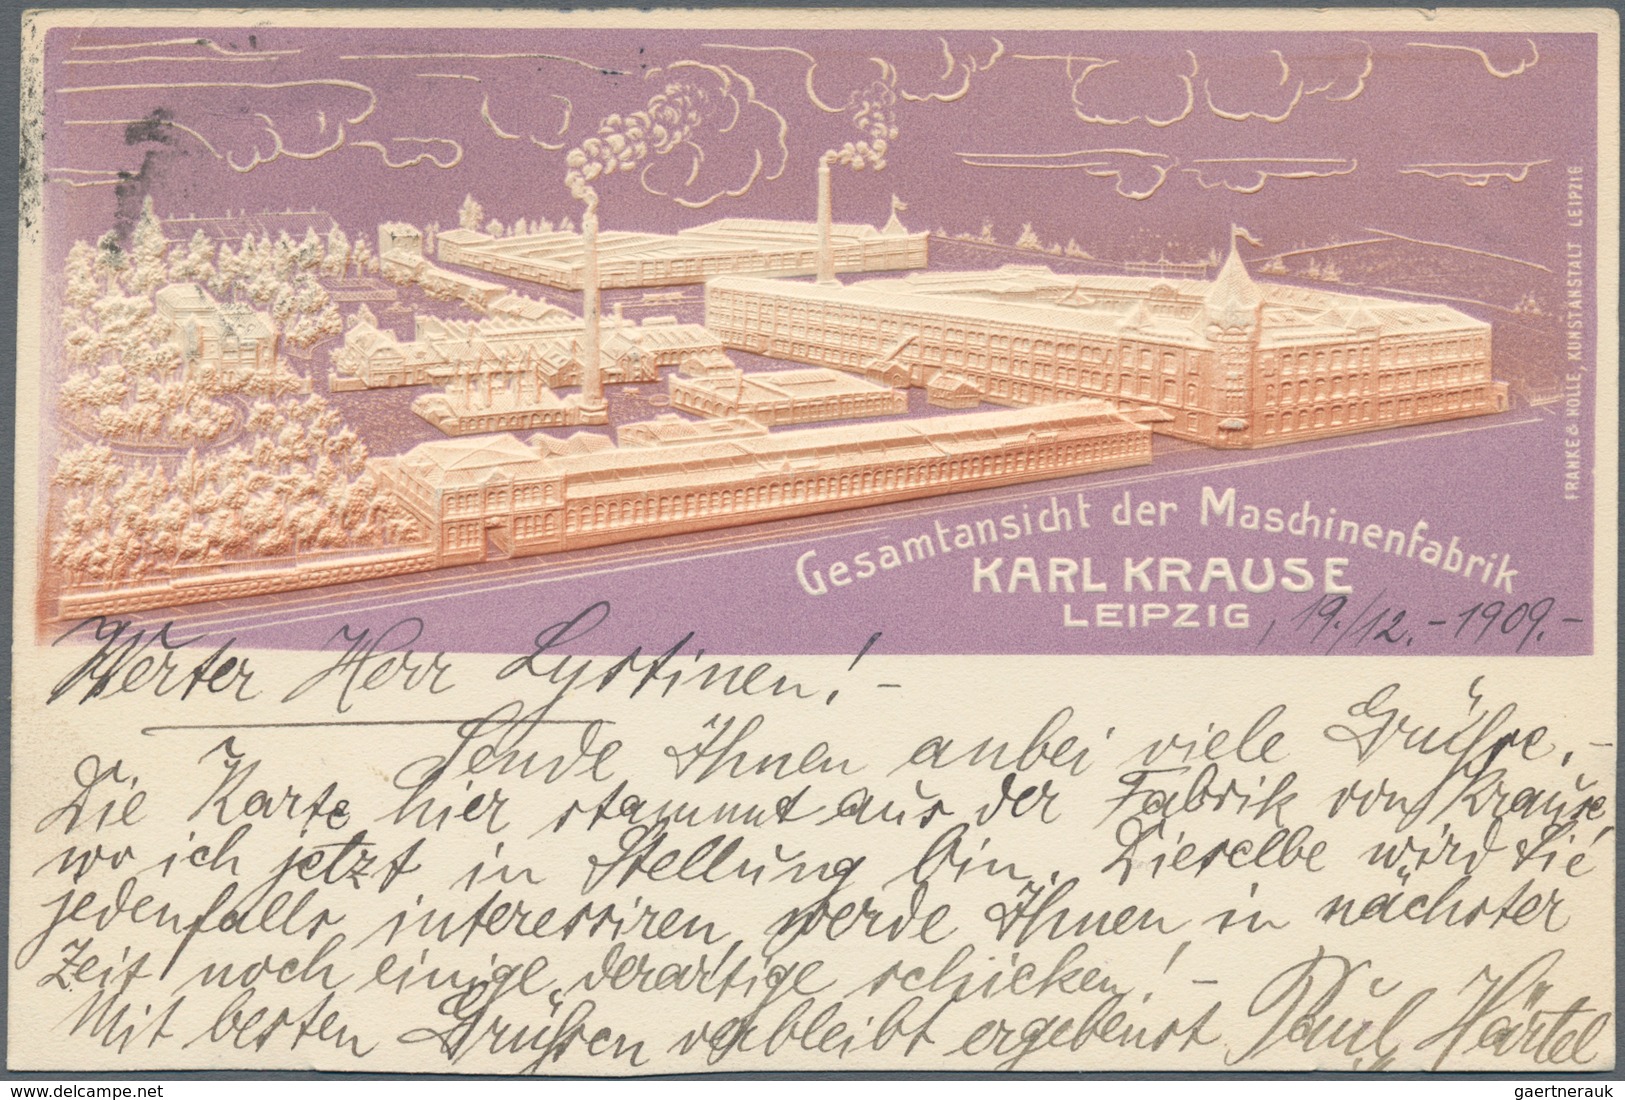 FRANKE & NOLLE, KUNSTANSTALT LEIPZIG
Gesamtansicht der Maschinenfabrik
KARL KRAUSE
LEIPZIG, 19./12.-1909.-
Werter Herr Lystinen!-
Sende Ihnen anbei viele Grüsse,-
Die Karte hier stammt aus der Fabrik von Krause,
wo ich jetzt in Stellung bin. Dieselbe wird Sie
jedenfalls interessiren, werde Ihnen in nächster
Zeit noch einige derartige schicken!-
Mit besten Grüssen verbleibt ergebenst Paul Härtel
© www.delcampe.net
gaertnerauk